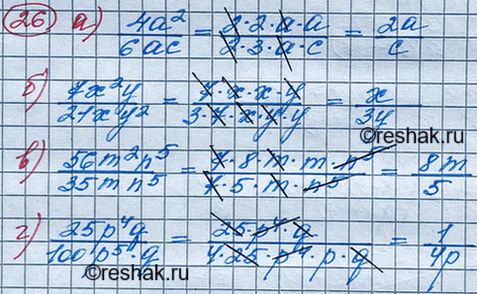 26 а) 4a²/6ac = 2·2·a·a/2·3·a·c = 2a/c
б) 7x²y/21xy² = 7·x·x·y/3·7·x·y·y = x/34
в) 56m²n⁵/35mn⁵ = 7·8·m·m·n⁵/7·5·m·n⁵ = 8m/5
г) 25p⁴q/100p⁵·q = 25·p⁴·q/4·25·p⁴·p·q = 1/4p
©reshak.ru
©reshak.ru
©reshak.ru